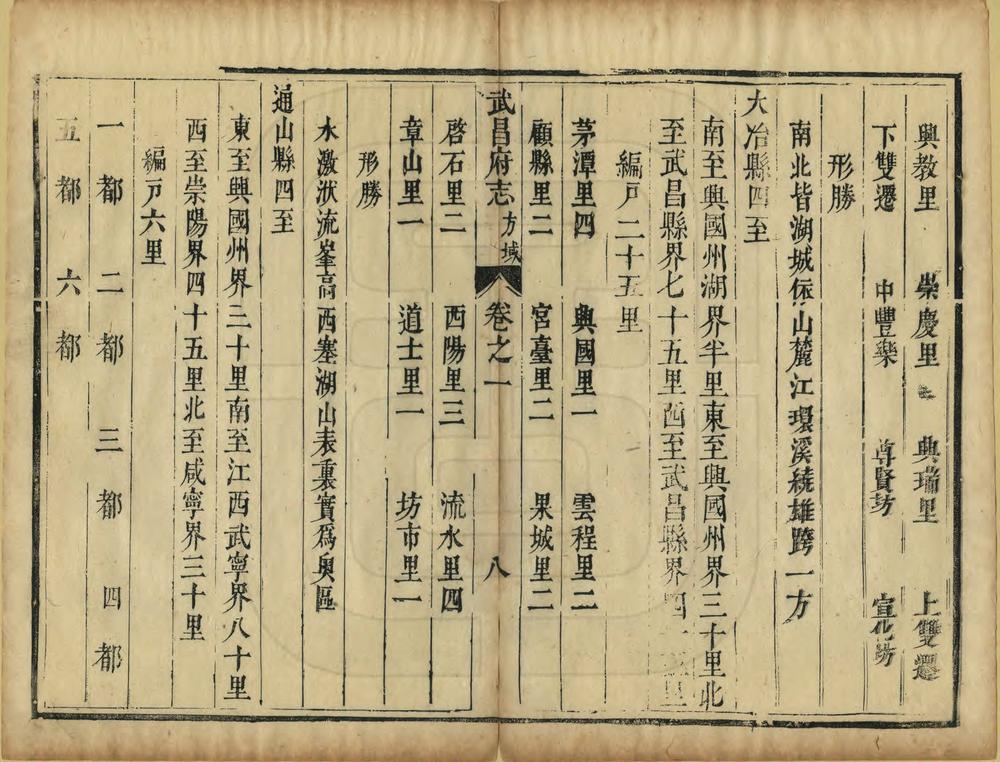 興教里 崇慶里 興瑞里 上雙遷
下雙遷 中豐樂 尊賢坊 宣化坊
形勝
南北皆湖城依山麓江環溪繞雄跨一方
大冶縣四至
南至興國州湖界半里東至興國州界三十里北
至武昌縣界七十五里西至武昌縣界四十里
編戸二十五里
茅潭里四 興國里一 雲程里二
顧縣里二 宮臺里二 果城里二
武昌府志 方域 卷之一 八
啓石里二 西陽里三 流水里四
章山里一 道士里一 坊市里一
形勝
水激洑流峯高西塞湖山表裏實爲奥區
通山縣四至
東至興國州界二十里南至江西武寧界八十里
西至崇陽界四十五里北至咸寧界三十里
編戸六里
一都 二都 三都 四都
五都 六都